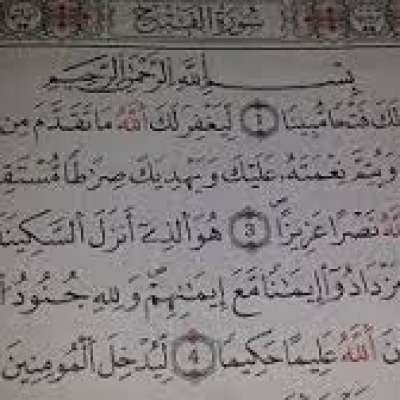 سُورَةُ الفَتْحِ
بِسْمِ اللَّهِ الرَّحْمَٰنِ الرَّحِيمِ
لَكَ فَتْحًا مُّبِينًا ① لِّيَغْفِرَ لَكَ اللَّهُ مَا تَقَدَّمَ مِن
وَيُتِمَّ نِعْمَتَهُۥ عَلَيْكَ وَيَهْدِيَكَ صِرَاطًا مُّسْتَقِ
نَصْرًا عَزِيزًا ③ هُوَ الَّذِي أَنزَلَ السَّكِينَ
زْدَادُوا إِيمَانًا مَّعَ إِيمَانِهِمْ وَلِلَّهِ جُنُودُ
اللَّهُ عَلِيمًا حَكِيمًا ④ لِّيُدْخِلَ الْمُومِنِينَ